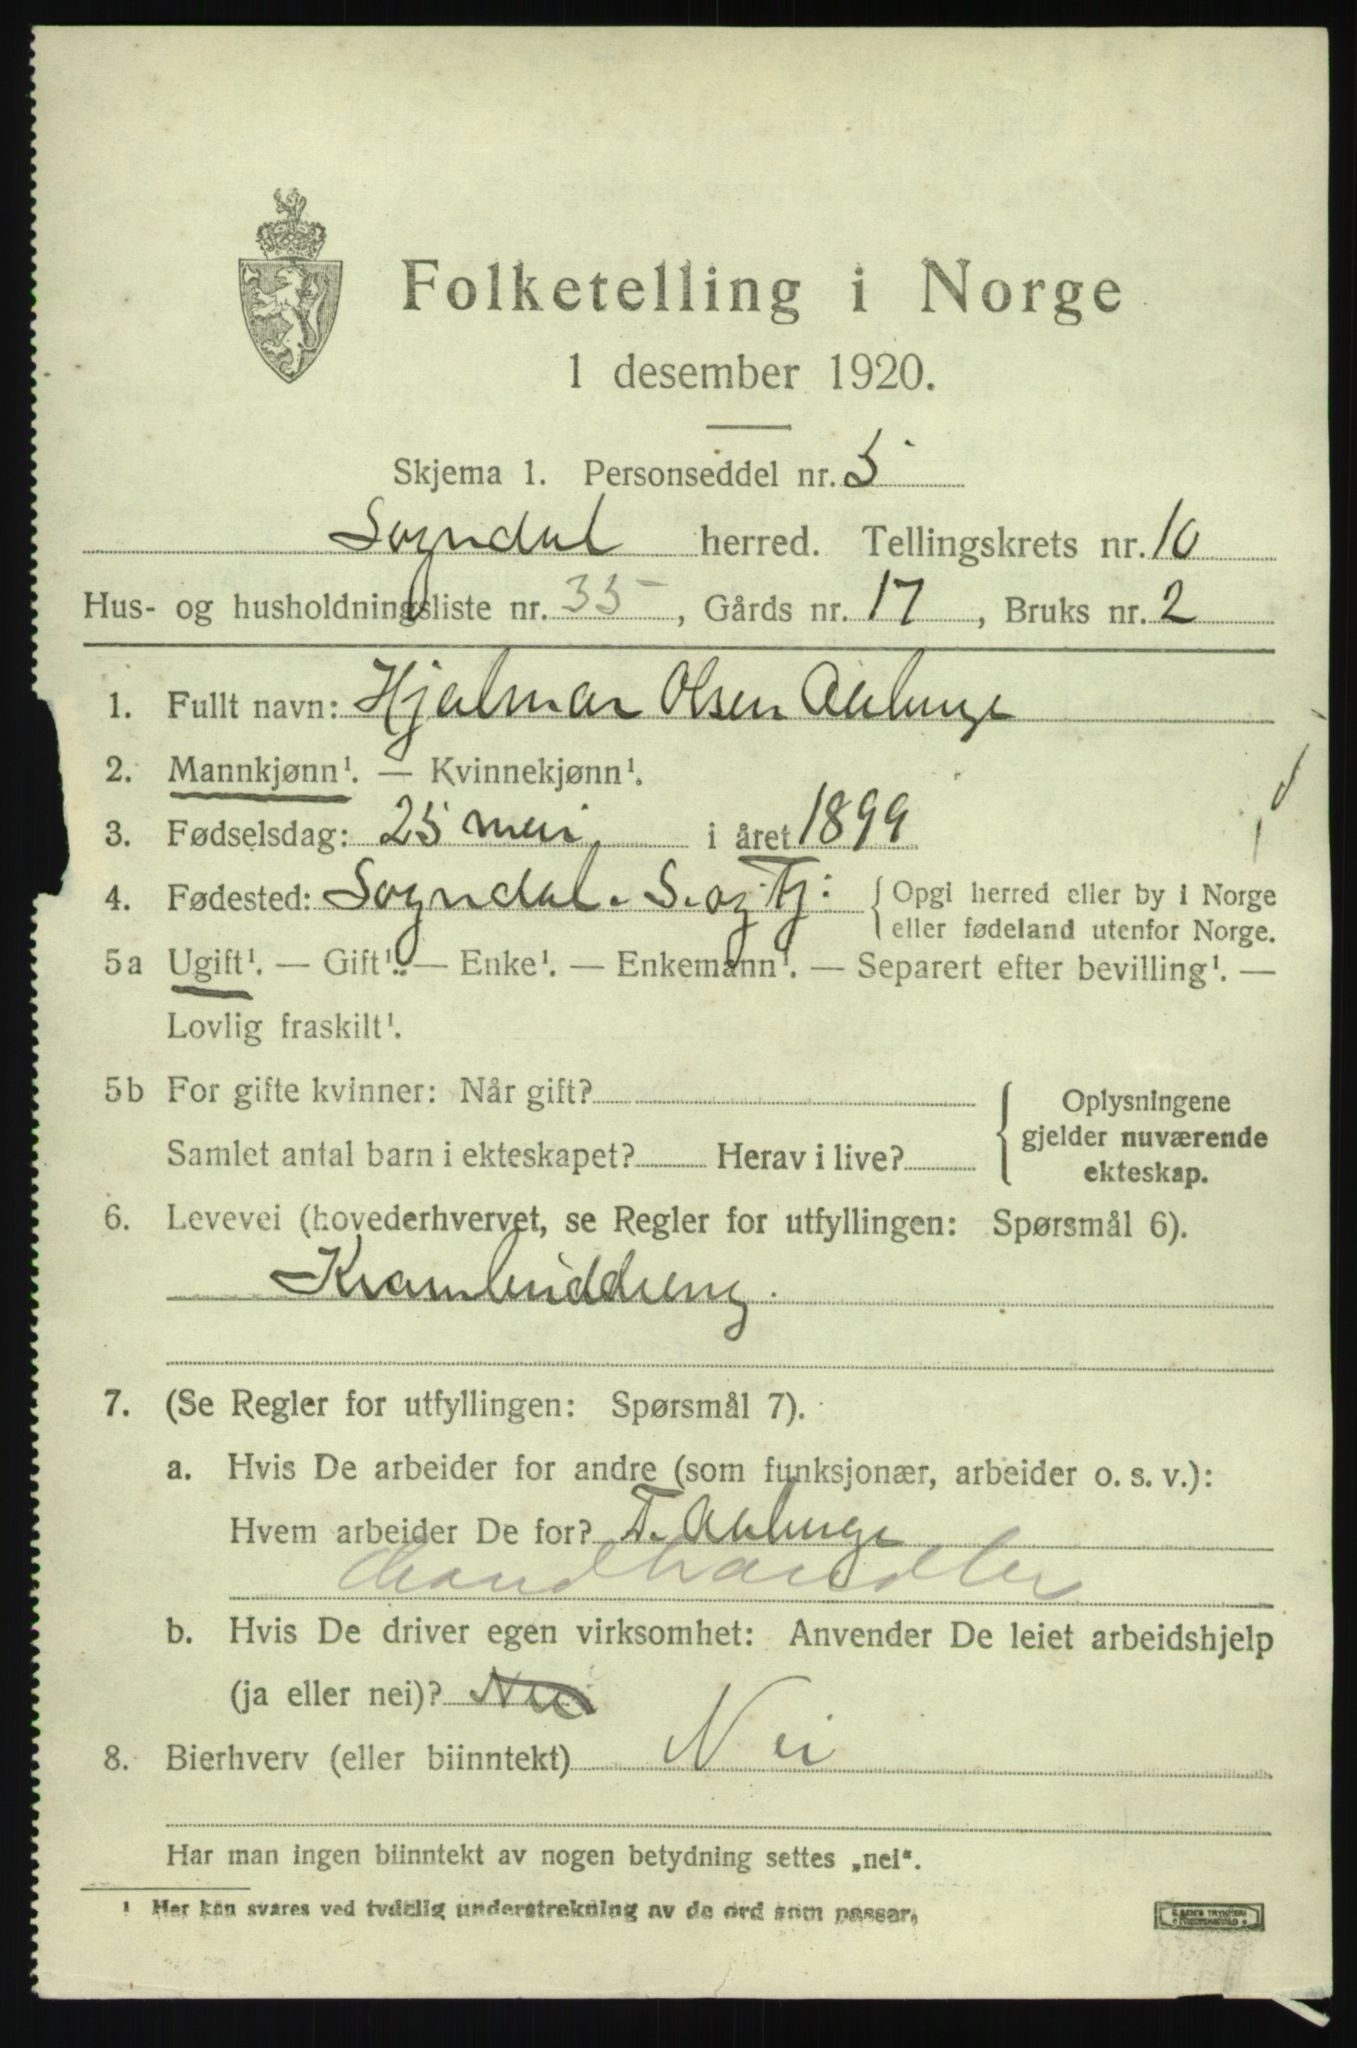 Folketelling i Norge
1 desember 1920.
Skjema 1. Personseddel nr. 5
Sogndal herred. Tellingskrets nr. 10
Hus- og husholdningsliste nr. 35, Gårds nr. 17, Bruks nr. 2
1. Fullt navn: Hjalmar Olsen Aaberge
2. Mannkjønn¹. — Kvinnekjønn¹.
3. Fødselsdag: 25 mai i året 1899
4. Fødested: Sogndal. S. og Fj: { Opgi herred eller by i Norge
eller fødeland utenfor Norge.
5a Ugift¹. — Gift¹. — Enke¹. — Enkemann¹. — Separert efter bevilling¹. —
Lovlig fraskilt¹.
5b For gifte kvinner: Når gift?
Samlet antal barn i ekteskapet? Herav i live?
Oplysningene
gjelder nuværende
ekteskap.
6. Levevei (hovederhvervet, se Regler for utfyllingen: Spørsmål 6).
Krambuddreng.
7. (Se Regler for utfyllingen: Spørsmål 7).
a. Hvis De arbeider for andre (som funksjonær, arbeider o. s. v.):
Hvem arbeider De for? T. Aaberge
Landhandler
b. Hvis De driver egen virksomhet: Anvender De leiet arbeidshjelp
(ja eller nei)? Nei
8. Bierhverv (eller biinntekt) Nei
Har man ingen biinntekt av nogen betydning settes „nei“.
¹ Her kan svares ved tydelig understrekning av de ord som passer.